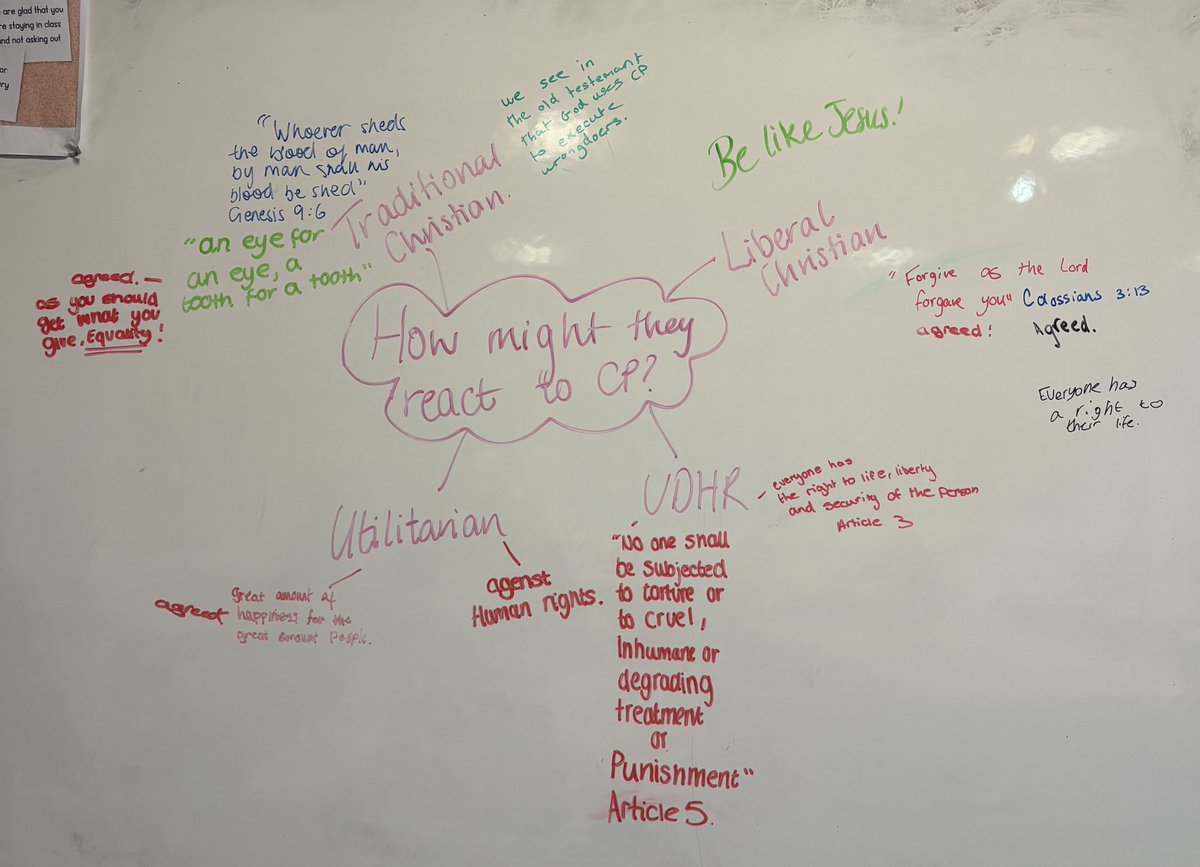 are glad that you
re staying in class
nd not asking out
or
ry
we see in
the old testemant
that God uses CP
to execute
wrongdoers.
"Whoever sheds
the blood of man,
by man shall his
blood be shed"
Genesis 9:6
Traditional
Christian.
"an eye for
an eye, a
tooth for a tooth"
agreed. —
as you should
get what you
give. Equality!
Be like Jesus!
Liberal
Christian
"Forgive as the Lord
forgave you" Colossians 3:13
agreed! Agreed.
Everyone has
a right to
their life.
How might they
react to CP?
Utilitarian
Great amount of
agreed happiness for the
great amount people.
agenst
Human rights.
UDHR
- everyone has
the right to life, liberty
and security of the person
Article 3
"No one shall
be subjected
to torture or
to cruel,
inhumane or
degrading
treatment
or
Punishment"
Article 5.